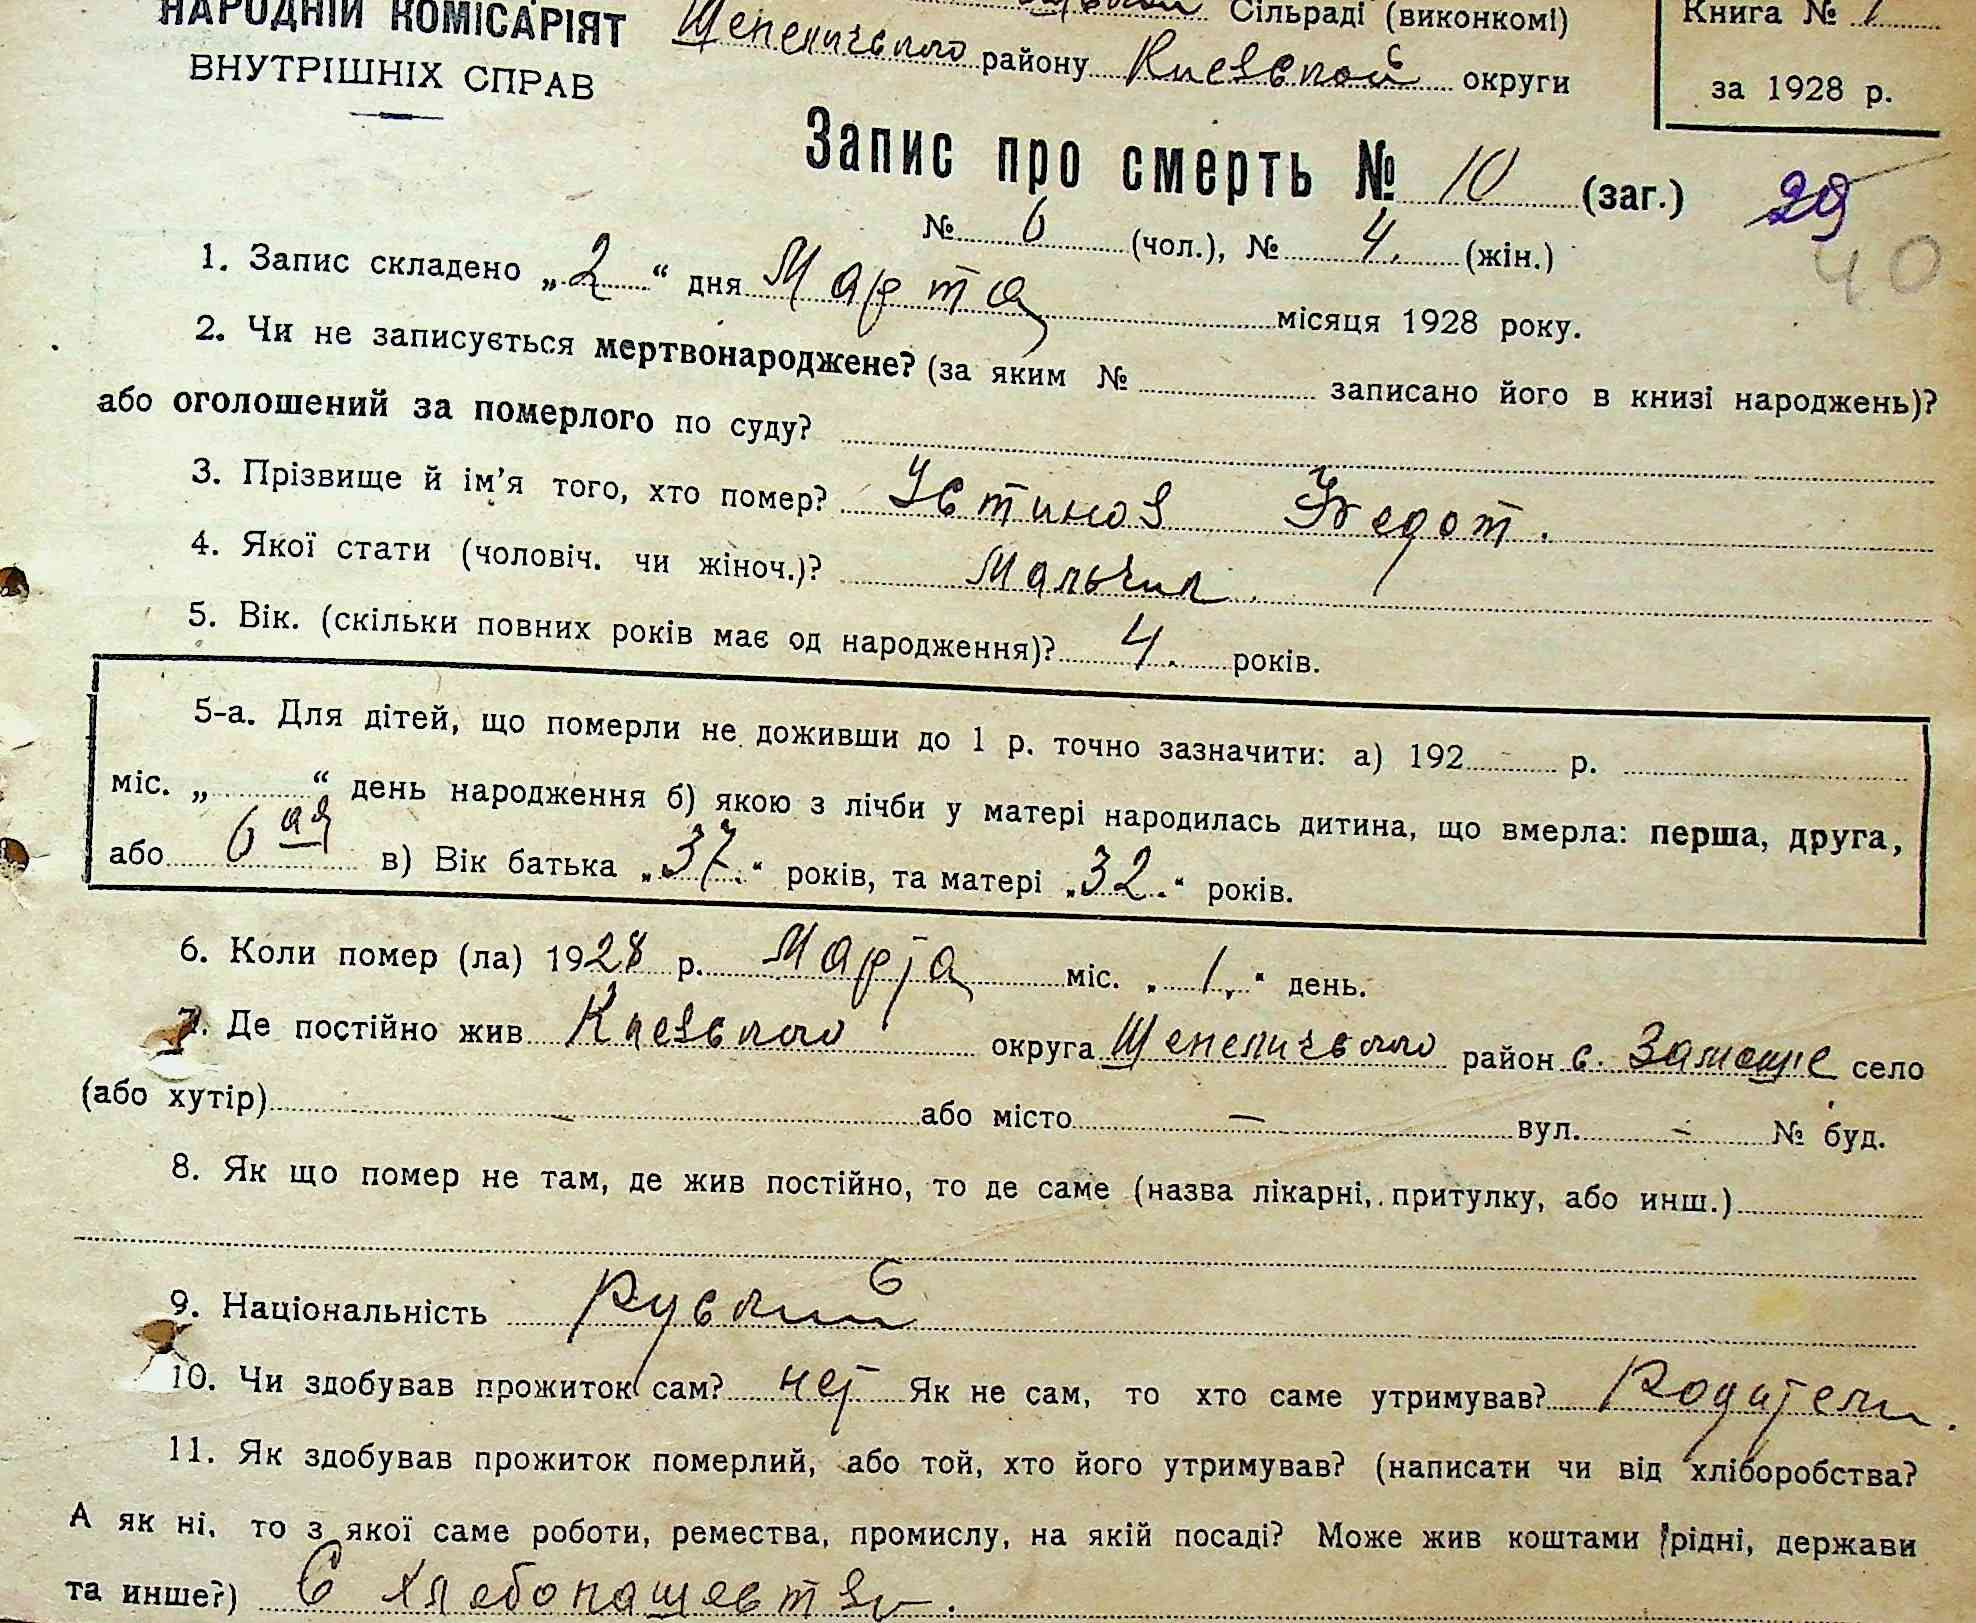 НАРОДНІЙ КОМІСАРІЯТ
ВНУТРІШНІХ СПРАВ
Сільраді (виконкомі)
Шепеличского району Киевской округи
Книга № 1
за 1928 р.
Запис про смерть № 10 (заг.)
29
40
№ 6 (чол.), № 4. (жін.)
1. Запис складено „2“ дня Марта місяця 1928 року.
2. Чи не записується мертвонароджене? (за яким № записано його в книзі народжень)?
або оголошений за померлого по суду?
3. Прізвище й ім’я того, хто помер? Устинов Федот.
4. Якої стати (чоловіч. чи жіноч.)? Мальчик
5. Вік. (скільки повних років має од народження)? 4. років.
5-а. Для дітей, що померли не доживши до 1 р. точно зазначити: а) 192 - р.
міс. „ “ день народження б) якою з лічби у матері народилась дитина, що вмерла: перша, друга,
або 6 ая в) Вік батька „37.“ років, та матері „32.“ років.
6. Коли помер (ла) 1928 р. Марта міс. „1.“ день.
7. Де постійно жив Киевского округа Шепеличского район с. Замошье село
(або хутір) — або місто — вул. — № буд.
8. Як що помер не там, де жив постійно, то де саме (назва лікарні, притулку, або инш.)
9. Національність Руский
10. Чи здобував прожиток сам? нет Як не сам, то хто саме утримував? Родители.
11. Як здобував прожиток померлий, або той, хто його утримував? (написати чи від хліборобства?
А як ні, то з якої саме роботи, ремества, промислу, на якій посаді? Може жив коштами рідні, держави
та инше?) С хлебопашества.